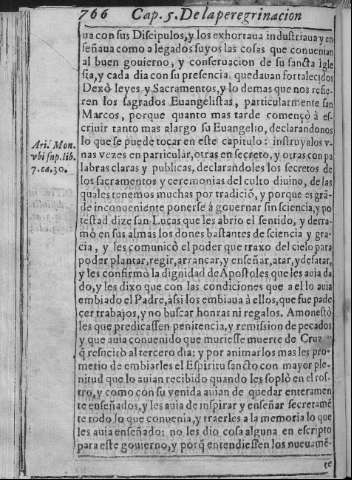 766 Cap. 5. De la peregrinacion
ua con sus Discipulos, y los exhortaua industriaua y en
señaua como a legados suyos las cosas que conuenian
al buen gouierno, y conseruacion de su sancta Igle
sia, y cada dia con su presencia, quedauan fortalecidos
Dexò leyes y Sacramentos, y lo demas que nos refie-
ren los sagrados Euangelistas, particularmente san
Marcos, porque quanto mas tarde començò à es-
criuir tanto mas alargo su Euangelio, declarandonos
lo que se puede tocar en este capitulo: instruyalos v-
nas vezes en particular, otras en secreto, y otras con pa
labras claras y publicas, declarandoles los secretos de
los sacramentos y ceremonias del culto diuino, de las
quales tenemos muchas por tradiciō, y porque es grā-
de inconueniente ponerse à gouernar sin sciencia, y po
testad dize san Lucas que les abrio el sentido, y derra-
mò en sus almas los dones bastantes de sciencia y gra-
cia, y les comunicò el poder que traxo del cielo para
poder plantar, regir, arrancar, y enseñar, atar, y desatar,
y les confirmò la dignidad de Apostoles que les auia da
do, y les dixo que con las condiciones que a el lo auia
embiado el Padre, àsi los embiaua à ellos, que fue pade
cer trabajos, y no buscar honras ni regalos. Amonestò
les que predicassen penitencia, y remision de pecados
y que auia conuenido que muriesse muerte de Cruz
q̃ resucitò al tercero dia: y por animarlos mas les pro-
metio de embiarles el Espiritu sancto con mayor ple-
nitud que lo auian recibido quando les soplò en el ros-
tro, y como con su venida auian de quedar enteramen
te enseñados, y les auia de inspirar y enseñar secretamē
te todo lo que conuenia, y traerles a la memoria lo que
les auia enseñado: no les dio cosa alguna en escripto
para este gouierno, y porq̃ entendiessen los nueuamē-
te
Ari. Mon.
vbi sup. lib.
7. ca. 30.